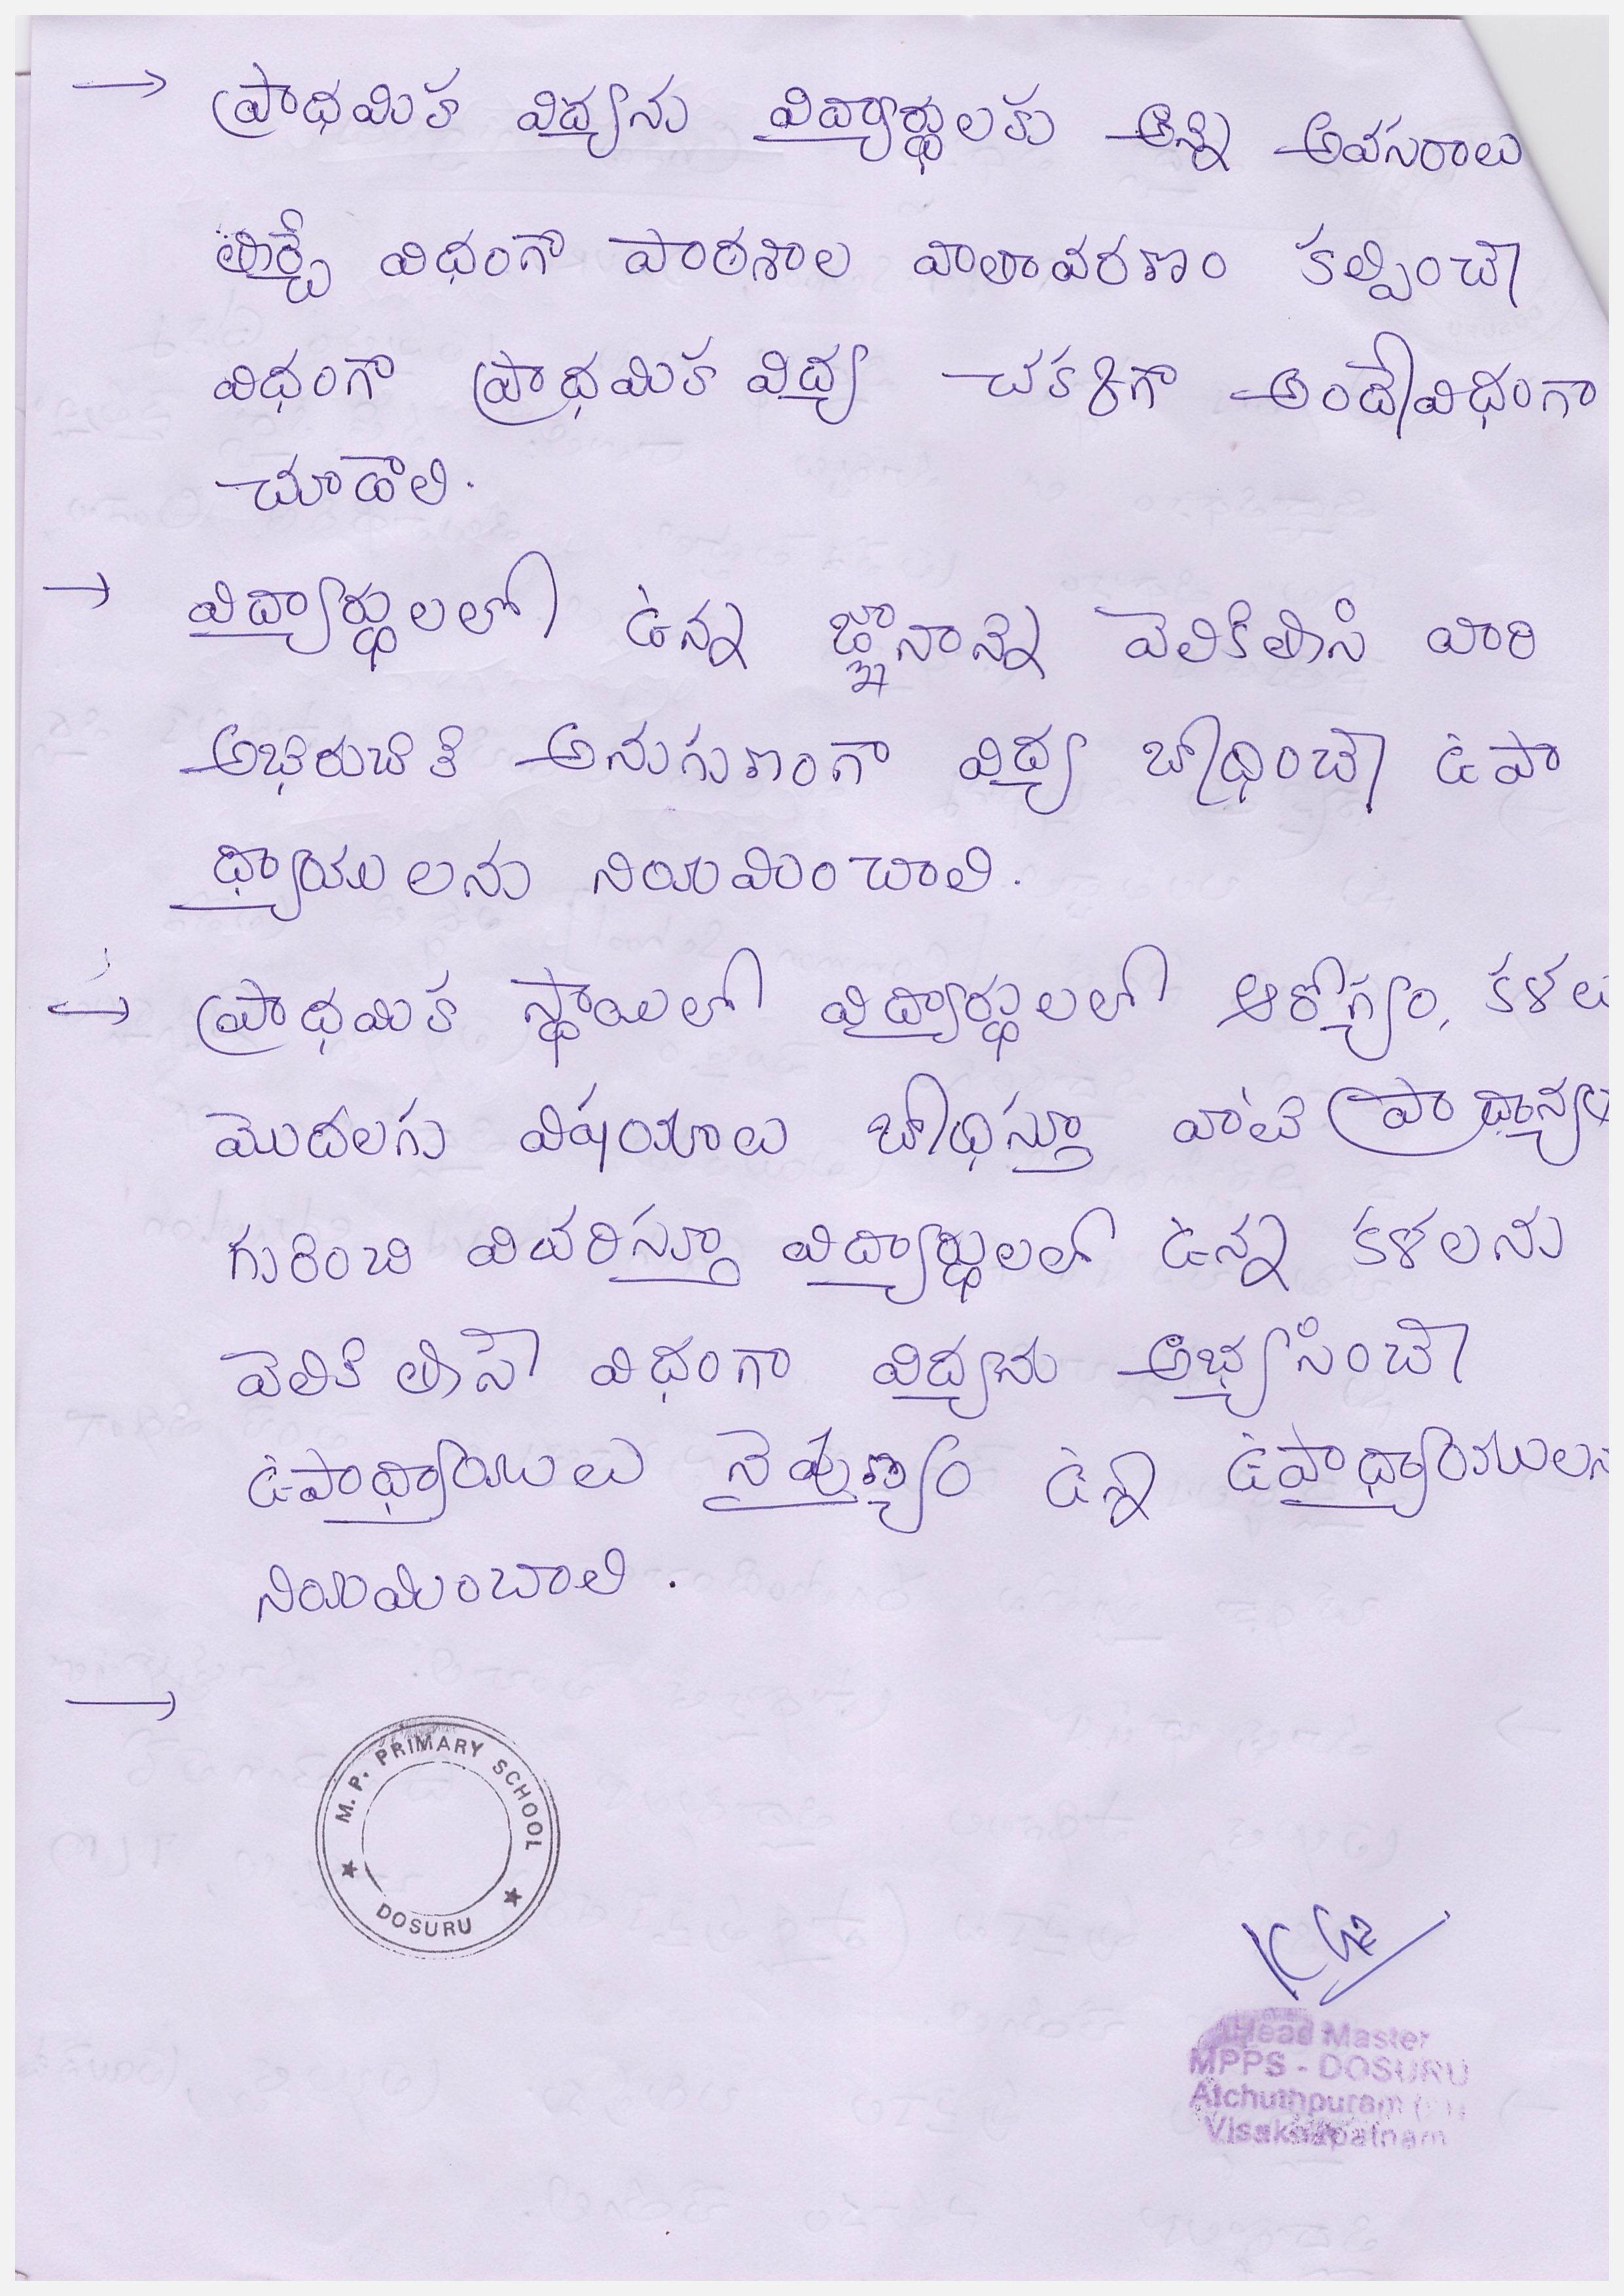 → ప్రాథమిక విద్యను విద్యార్థులకు అన్ని అవసరాలు
తీర్చే విధంగా పాఠశాల వాతావరణం కల్పించే
విధంగా ప్రాథమిక విద్య చకరిగా అందేవిధంగా
చూడాలి.
→ విద్యార్థులలో ఉన్న జ్ఞానాన్ని వెలికితీసి వారి
అభిరుచికి అనుగుణంగా విద్య బోధించే ఉపా
ధ్యాయులను నియమించాలి.
→ ప్రాథమిక స్థాయిలో విద్యార్థులలో ఆరోగ్యం, కళలు
మొదలగు విషయాలు బోధిస్తూ వాటి
గురించి వివరిస్తూ విద్యార్థులలో ఉన్న కళలను
వెలికి తీసే విధంగా విద్యను అభ్యసించే
ఉపాధ్యాయులు నైపుణ్యం ఉన్న ఉపాధ్యాయులన
నియమించాలి.
→
M.P. PRIMARY SCHOOL
★ DOSURU ★
Head Master
MPPS - DOSURU
Atchuthpuram
Visakhapatnam